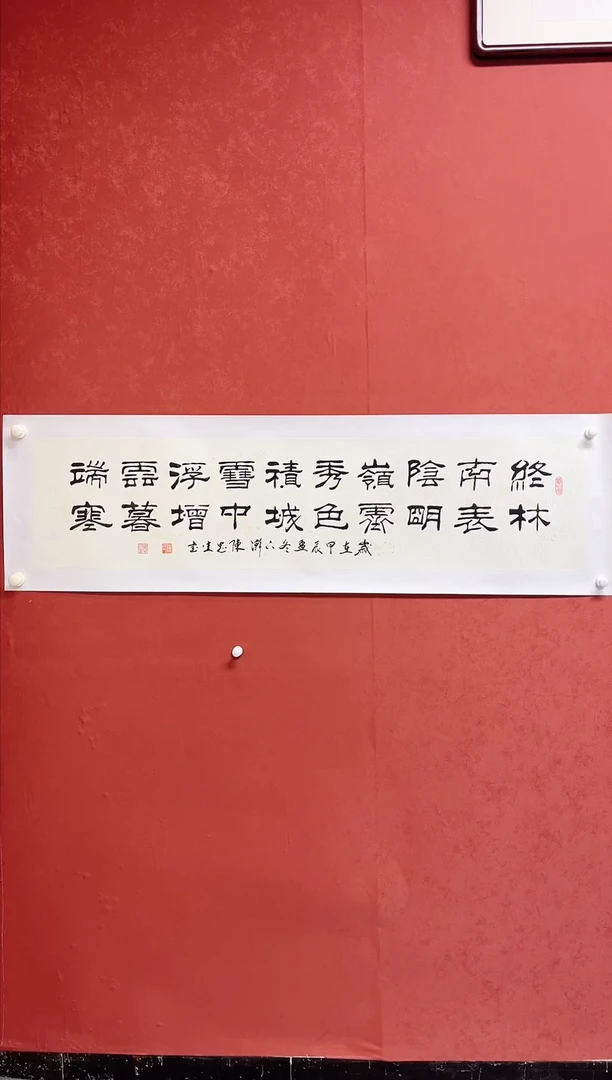 終南陰嶺秀積雪浮雲端
林表明霽色城中增暮寒
歲在甲辰孟冬 陳忠 書